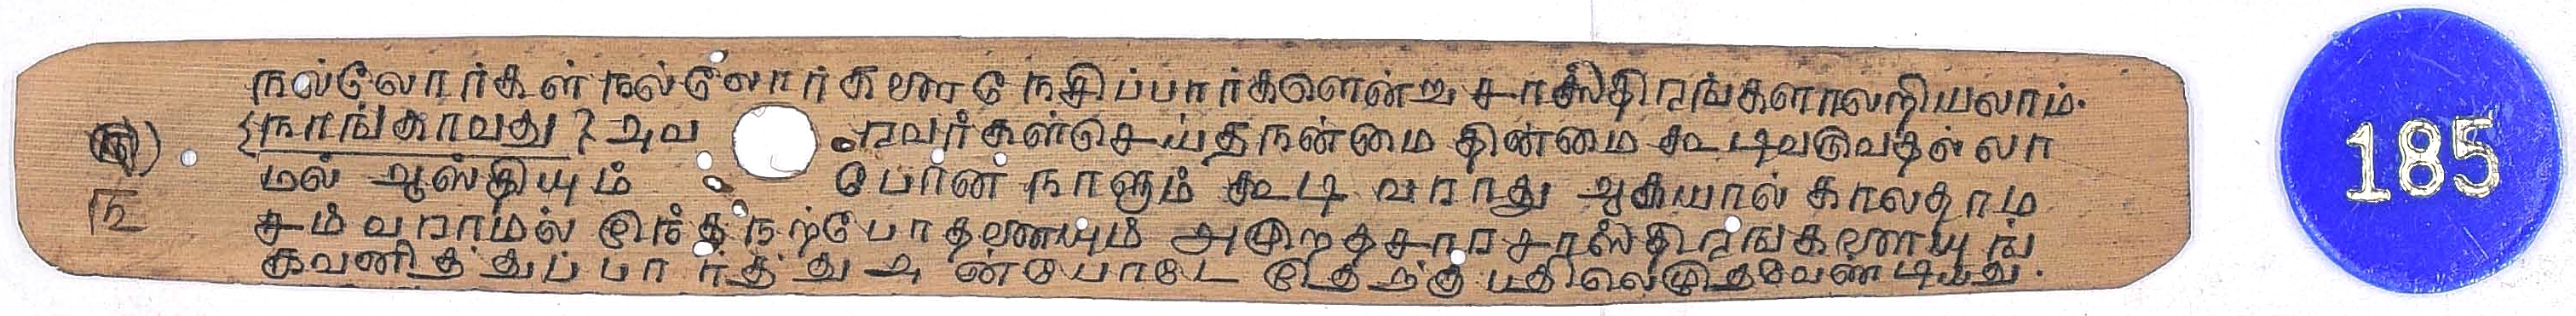 நல்லோர்கள் நல்லோர்களை நேசிப்பார்களென்று சாஸ்திரங்களாலறியலாம்.
நாங்காவது? அவ ரவர்கள் செய்த நன்மை தின்மை கூடிவருவதல்லா
மல் ஆஸ்தியும் போன நாளும் கூடி வராது ஆகையால் காலதாம
சம் வராமல் இந்த நற்போதனையும் அமுறத சார சாஸ்திரங்களையுங்
கவனித்துப் பார்த்து அன்போடே இதற்கு பதிலெழுதவேண்டியது.
185